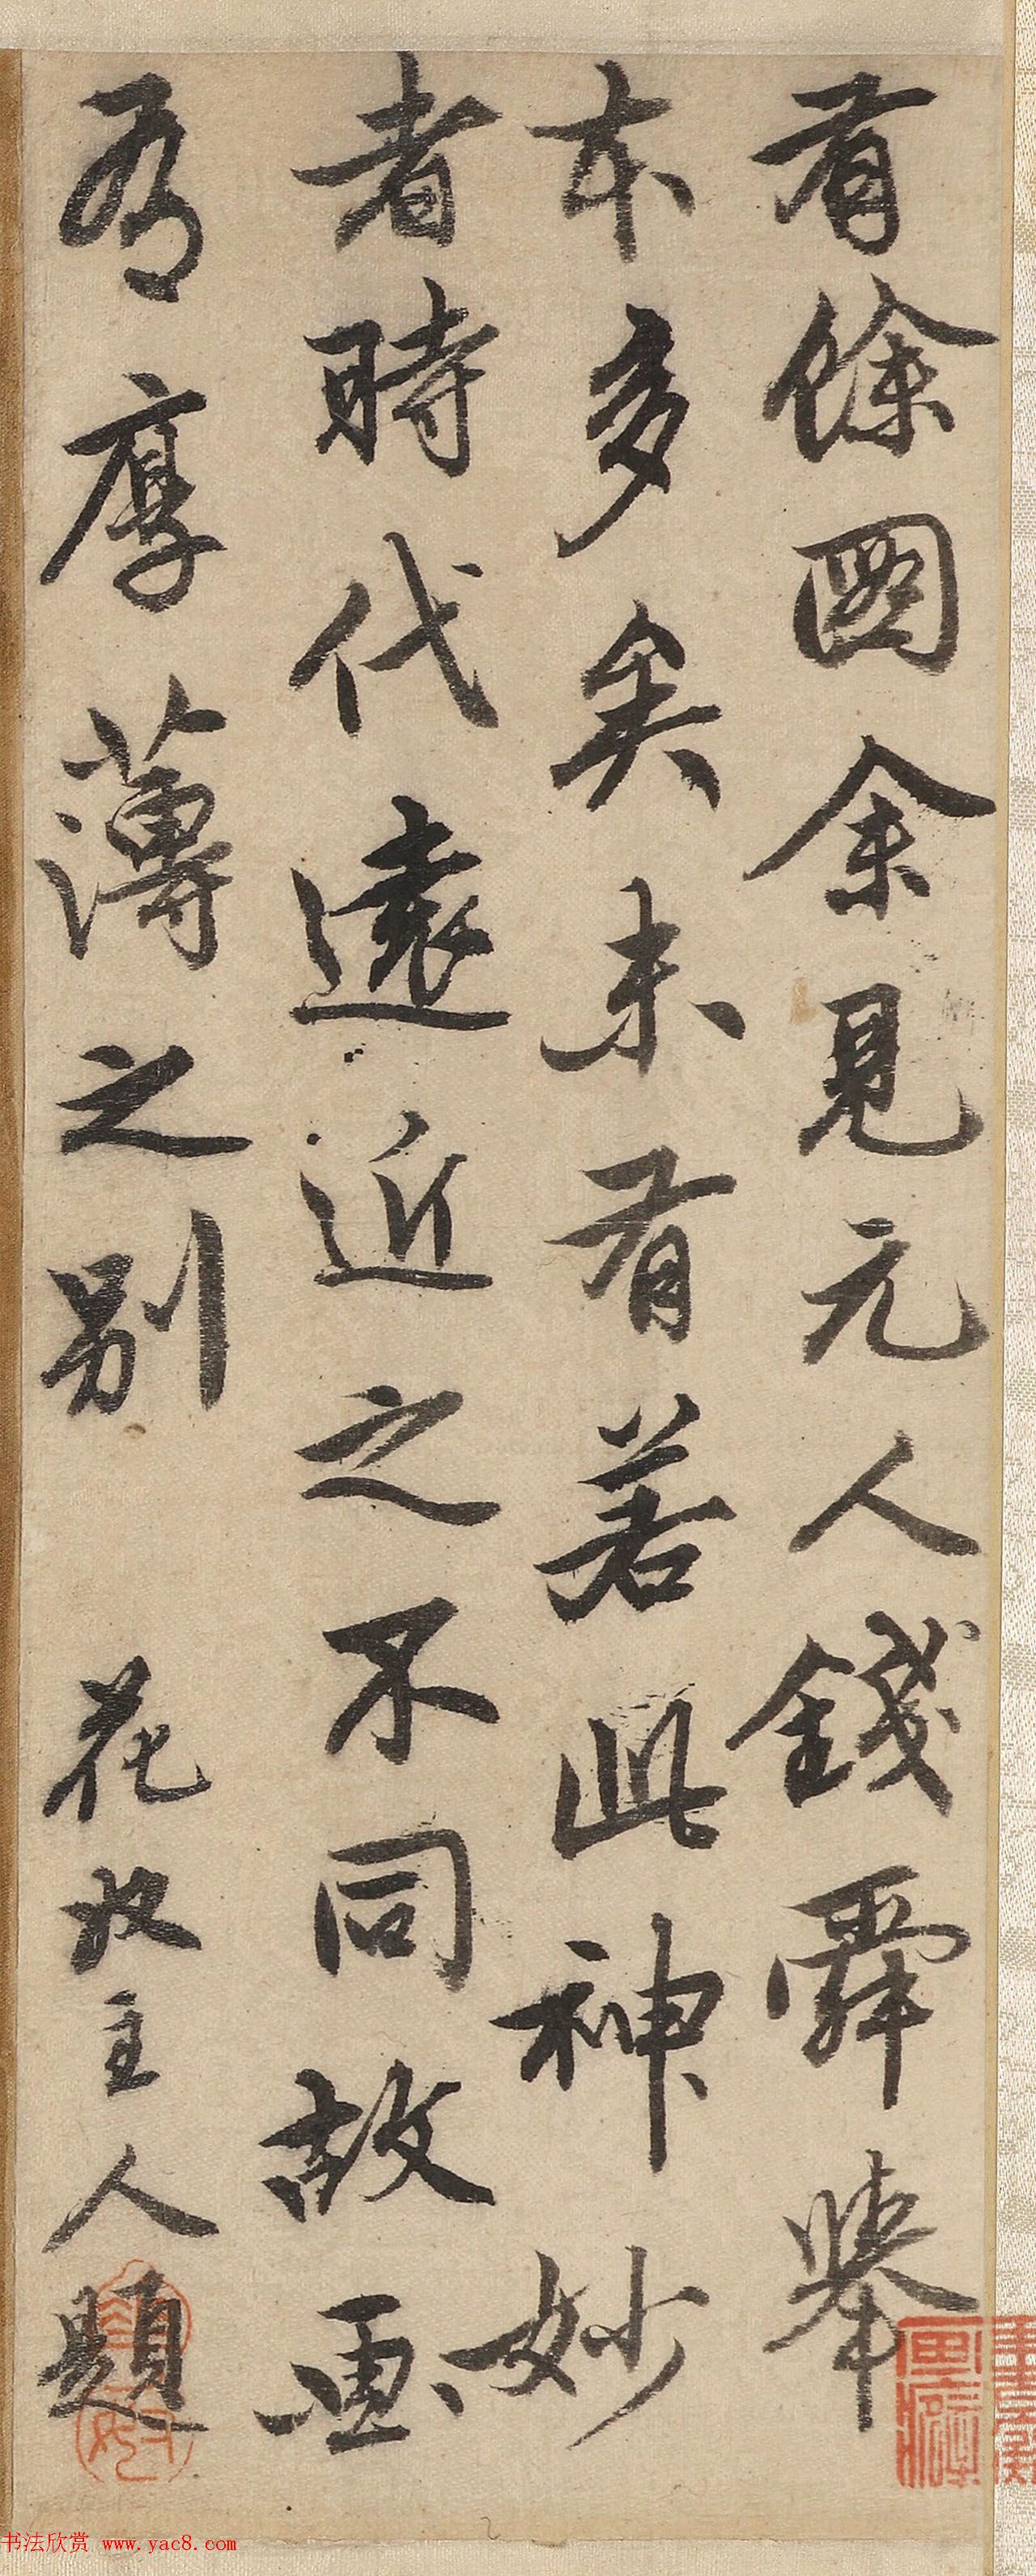 有餘圖余見元人錢舜舉
本多矣未有若此神妙
者時代遠近之不同故画
有厚薄之别 花奴主人題
书法欣赏 www.yac8.com